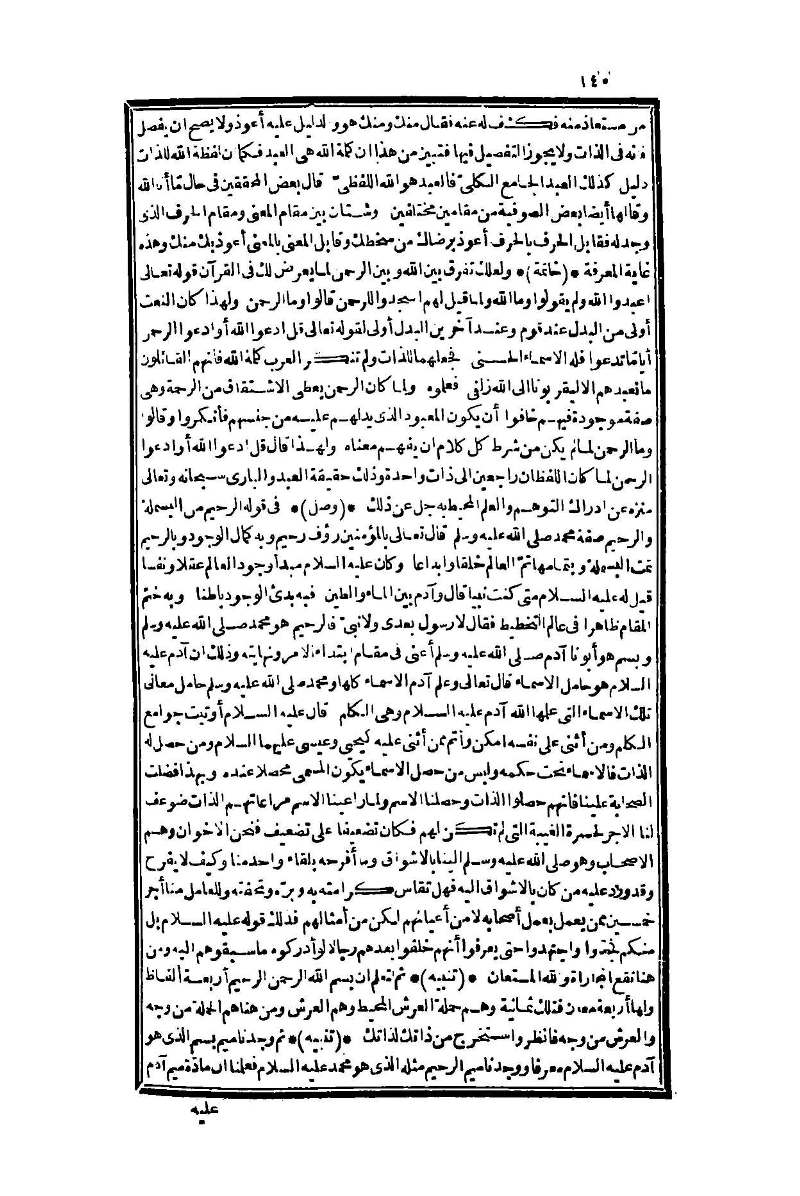 ١٤٠
من مستعاذ منه فكشف له عنه فقال منك ومنك هو والدليل عليه أعوذ ولا يصح ان يفصل
فانه فى الذات ولا يجوز التفصيل فيها فتبين من هذا ان كلمة الله هى العبد فكما ان لفظة الله للذات
دليل كذلك العبد الجامع الكلى فالعبد هو الله اللفظى قال بعض المحققين فى حال ما أنا الله
وقالها أيضا بعض الصوفية من مقامين مختلفين وشتان بين مقام المعنى ومقام الحرف الذى
وجد له فقابل الحرف بالحرف أعوذ برضاك من سخطك وقابل المعنى بالمعنى أعوذ بك منك وهذه
غاية المعرفة *(خاتمة)* ولعلك تفرق بين الله وبين الرحمن لما يعرض لك فى القرآن قوله تعالى
اعبدوا الله ولم يقولوا وما الله ولما قيل لهم اسجدوا للرحمن قالوا وما الرحمن ولهذا كان النعت
أولى من البدل عند قوم وعند آخرين البدل أولى لقوله تعالى قل ادعوا الله أو ادعوا الرحمن
أيا ما تدعوا فله الاسماء الحسنى فجعلهما للذات ولم تنكر العرب كلمة الله فانهم القائلون
ما نعبدهم الا ليقربونا الى الله زلفى فعلموه ولما كان الرحمن يعطى الاشتقاق من الرحمة وهى
صفة موجودة فيهم خافوا أن يكون المعبود الذى يدلهم عليه من جنسهم فأنكروا وقالوا
وما الرحمن لما لم يكن من شرط كل كلام ان يفهم معناه ولهذا قال قل ادعوا الله أو ادعوا
الرحمن لما كان اللفظان راجعين الى ذات واحدة وذلك حقيقة العبد والبارى سبحانه وتعالى
منزه عن ادراك التوهم والعلم المحيط به جل عن ذلك *(وصل)* فى قوله الرحيم من البسملة
والرحيم صفة محمد صلى الله عليه وسلم قال تعالى بالمؤمنين رؤف رحيم وبه كمال الوجود وبالرحيم
تمت البسملة وبتمامها تم العالم خلقا وابداعا وكان عليه السلام مبدأ وجود العالم عقلا ونفسا
قيل له عليه السلام متى كنت نبيا قال وآدم بين الماء والطين فبه بدئ الوجود باطنا وبه ختم
المقام ظاهرا فى عالم التخطيط فقال لا رسول بعدى ولا نبى فالرحيم هو محمد صلى الله عليه وسلم
وبسم هو أبونا آدم صلى الله عليه وسلم أعنى فى مقام ابتداء الامر ونهايته وذلك ان آدم عليه
السلام هو حامل الاسماء قال تعالى وعلم آدم الاسماء كلها ومحمد صلى الله عليه وسلم حامل معانى
تلك الاسماء التى حلها الله آدم عليه السلام وهى الكلم قال عليه السلام أوتيت جوامع
الكلم ومن أثنى على نفسه امكن وأتم ممن أثنى عليه كيحيى وعيسى عليهما السلام ومن حصل له
الذات فالاسماء تحت حكمه وليس من حصل الاسماء يكون المسمى محصلا عنده وبهذا فضلت
الصحابة علينا فانهم حصلوا الذات وحصلنا الاسم ولما راعينا الاسم مراعاتهم الذات ضوعف
لنا الاجر لحسرة الغيبة التى لم تكن لهم فكان تضعيفا على تضعيف فنحن الاخوان وهم
الاصحاب وهو صلى الله عليه وسلم الينا بالاشواق وما أفرحه بلقاء واحد منا وكيف لا يفرح
وقد ورد عليه من كان بالاشواق اليه فهل تقاس كرامته به وبره وتحفته وللعامل منا أجر
خمسين ممن يعمل بعمل أصحابه لا من أعيانهم لكن من أمثالهم فذلك قوله عليه السلام بل
منكم فجدوا واجتهدوا حتى يعرفوا أنهم خلفوا بعدهم رجالا لو أدركوه ما سبقوهم اليه ومن
هنا تقع المجازاة والله المستعان *(تنبيه)* ثم لتعلم ان بسم الله الرحمن الرحيم أربعة ألفاظ
ولها أربعة معان فتلك ثمانية وهم حملة العرش المحيط وهم العرش ومن هنا هم الحملة من وجه
والعرش من وجه فانظر واستخرج من ذاتك لذاتك *(تنبيه)* ثم وجدنا ميم بسم الذى هو
آدم عليه السلام معرقا ووجدنا ميم الرحيم مثله الذى هو محمد عليه السلام فعلمنا ان مادة ميم آدم
عليه